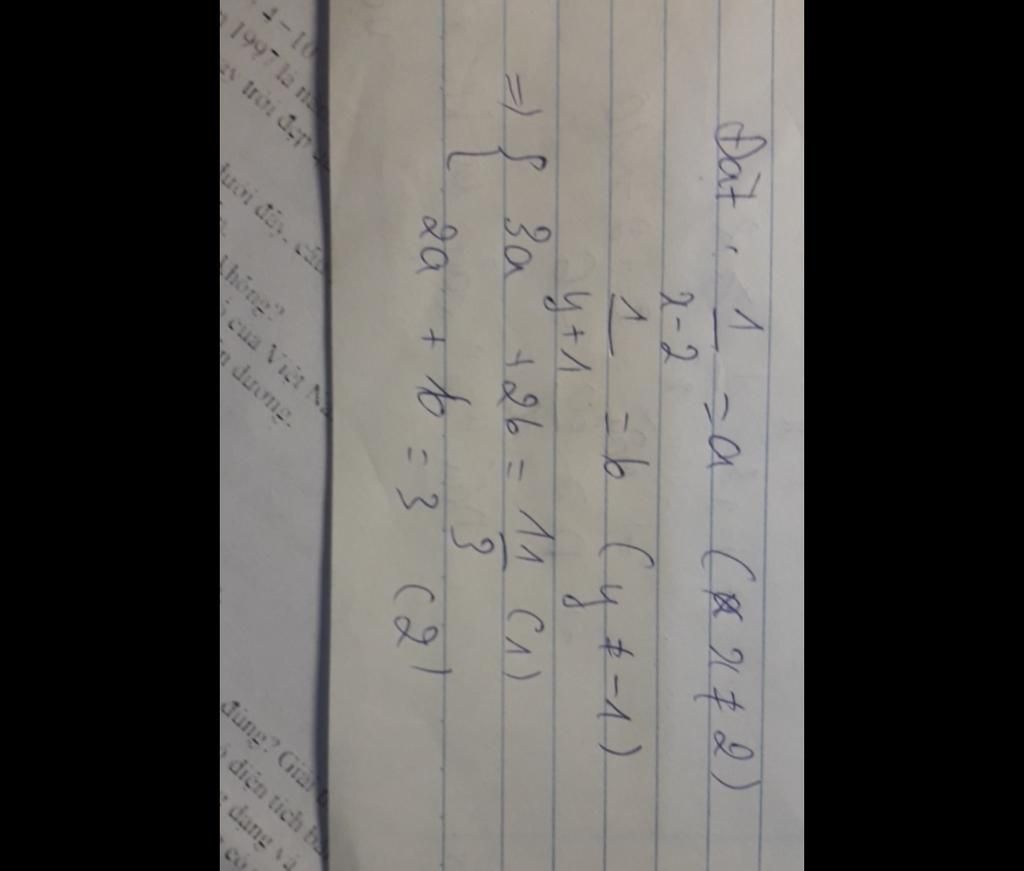 Đặt. 1/x-2 = a ( x ≠ 2 )
1/y+1 = b ( y ≠ -1 )
=> { 3a + 2b = 11/3 (1)
2a + b = 3 (2)
1997 là
trời đẹp
dưới đây, câu
không?
của Việt Na
dương.
đúng? Giải
diện tích
dạng và
có